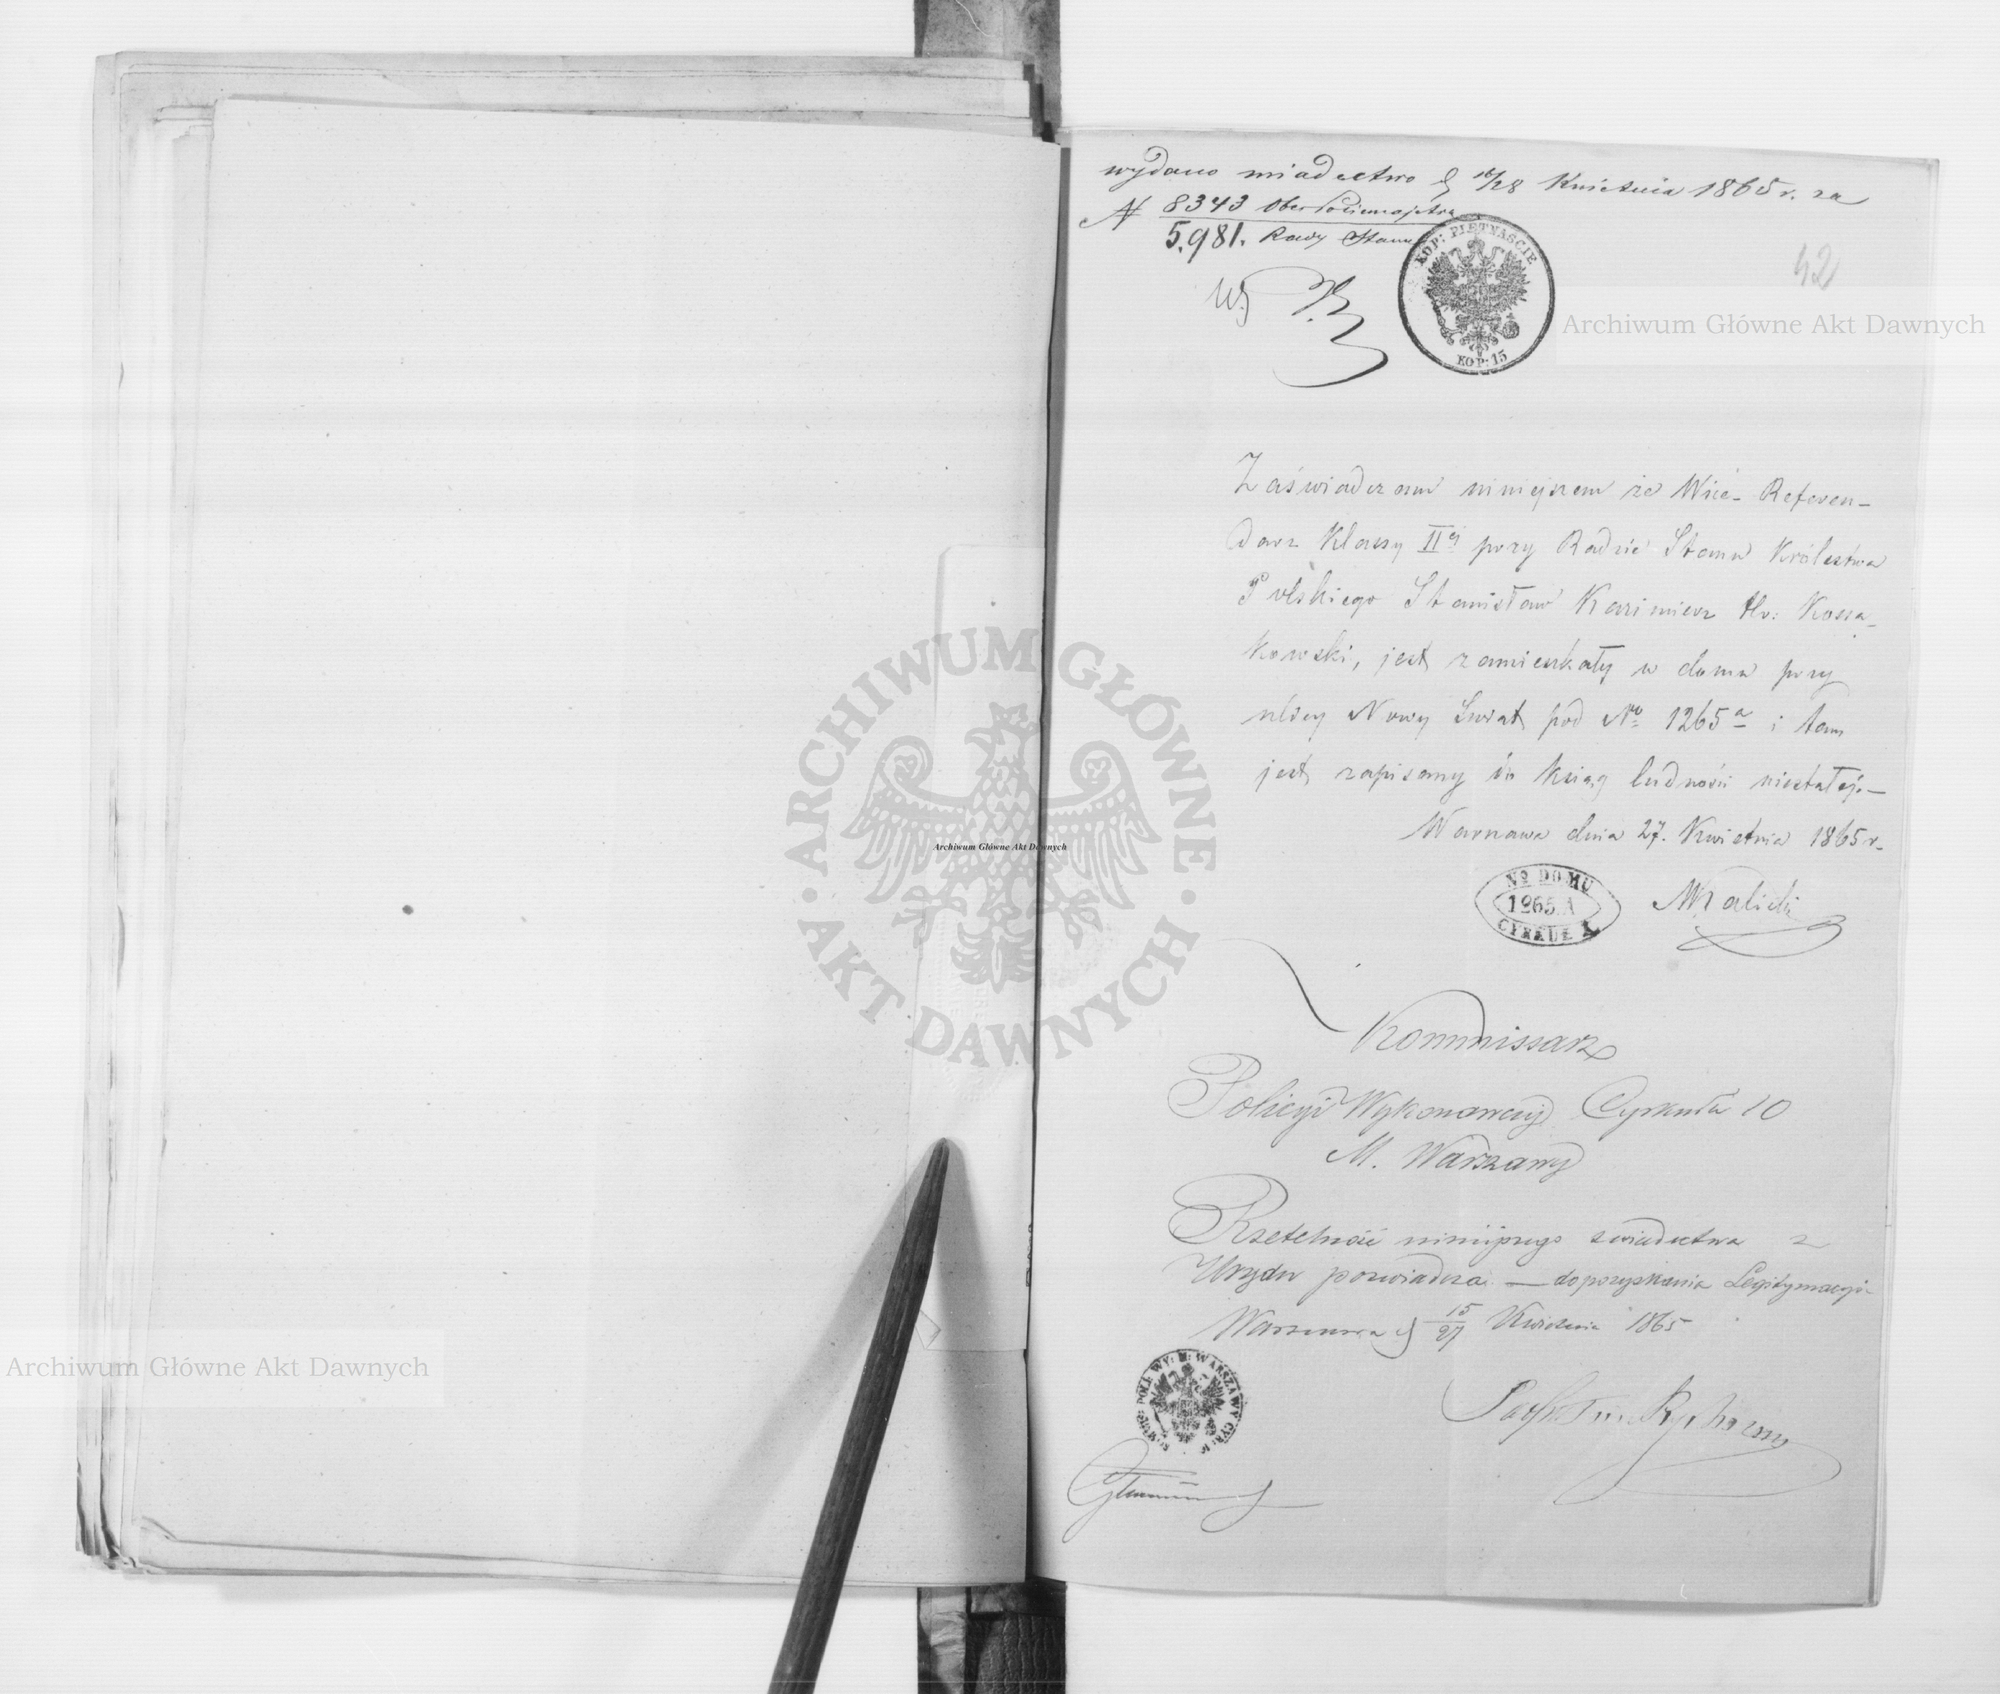 wydano swiadectwo d 16/28 Kwietnia 1865 r. za
N 8343 Oberpolicmajstra
5,981. Rady Stanu
KOP: PIĘTNAŚCIE
KOP: 15
42
Archiwum Główne Akt Dawnych
Zaświadczam niniejszem że Wice-Referen-
darz Klassy IIej przy Radzie Stanu Królestwa
Polskiego Stanisław Kazimierz Hr: Kossa-
kowski, jest zamieszkały w domu przy
ulicy Nowy Swiat pod No 1265a i tam
jest zapisany do Ksiąg ludności niestałej.—
Warszawa dnia 27. Kwietnia 1865 r.
No DOMU
1265.A
CYRKUŁ
Kommissarz
Policyi Wykonawczej Cyrkułu 10
M. Warszawy
Rzetelność niniejszego swiadectwa z
Urzędu poświadcza — do pozyskania Legitymacyi
Warszawa d 15/27 Kwietnia 1865
WARSZAWY CYR:
ARCHIWUM GŁÓWNE
AKT DAWNYCH
Archiwum Główne Akt Dawnych
Archiwum Główne Akt Dawnych